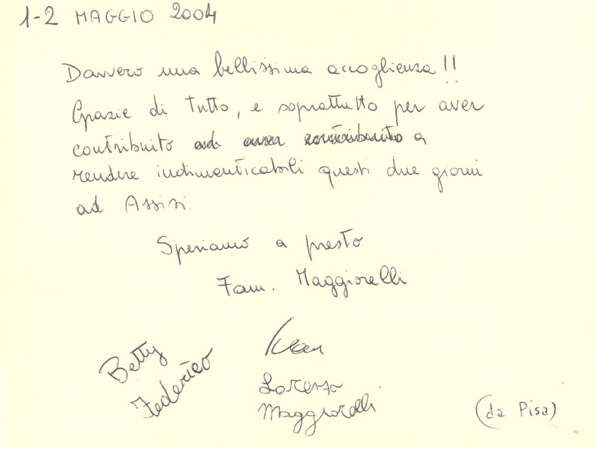 1-2 MAGGIO 2004
Davvero una bellissima accoglienza!!
Grazie di tutto, e soprattutto per aver
contribuito ad aver contribuito a
rendere indimenticabili questi due giorni
ad Assisi.
Speriamo a presto
Fam. Maggiorelli
Betty
Federico
Ivan
Lorenzo
Maggiorelli
(da Pisa)